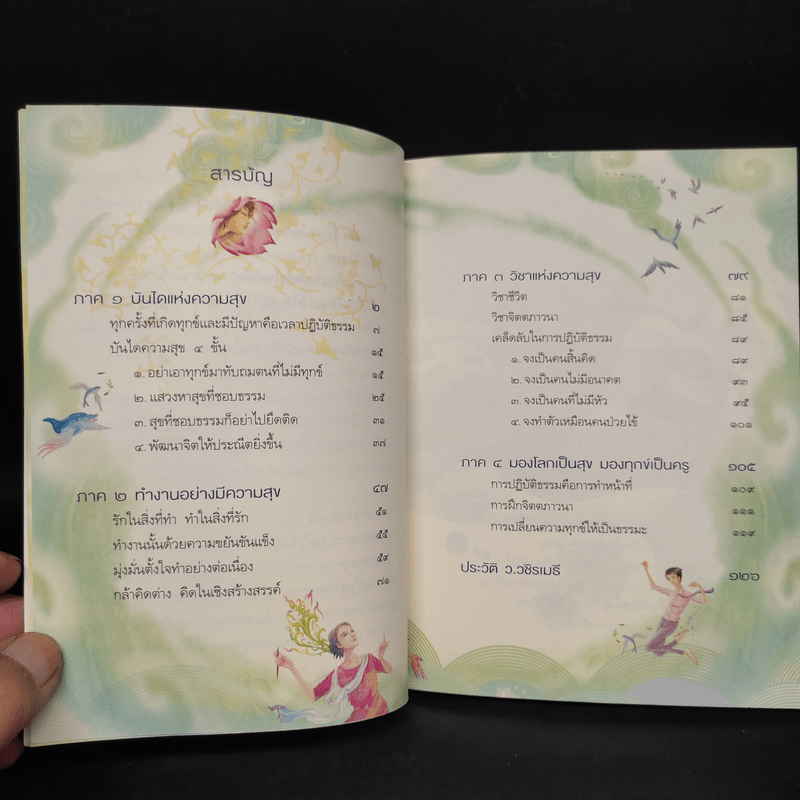 สารบัญ
ภาค ๑ บันไดแห่งความสุข ๒
ทุกครั้งที่เกิดทุกข์และมีปัญหาคือเวลาปฏิบัติธรรม ๗
บันไดความสุข ๔ ชั้น ๑๕
๑. อย่าเอาทุกข์มาทับถมตนที่ไม่มีทุกข์ ๑๕
๒. แสวงหาสุขที่ชอบธรรม ๒๕
๓. สุขที่ชอบธรรมก็อย่าไปยึดติด ๓๑
๔. พัฒนาจิตให้ประณีตยิ่งขึ้น ๓๗
ภาค ๒ ทำงานอย่างมีความสุข ๔๗
รักในสิ่งที่ทำ ทำในสิ่งที่รัก ๕๑
ทำงานนั้นด้วยความขยันขันแข็ง ๕๕
มุ่งมั่นตั้งใจทำอย่างต่อเนื่อง ๕๙
กล้าคิดต่าง คิดในเชิงสร้างสรรค์ ๗๑
ภาค ๓ วิชาแห่งความสุข ๗๙
วิชาชีวิต ๘๑
วิชาจิตตภาวนา ๘๕
เคล็ดลับในการปฏิบัติธรรม ๘๙
๑. จงเป็นคนสิ้นคิด ๘๙
๒. จงเป็นคนไม่มีอนาคต ๙๓
๓. จงเป็นคนที่ไม่มีหัว ๙๕
๔. จงทำตัวเหมือนคนป่วยไข้ ๑๐๑
ภาค ๔ มองโลกเป็นสุข มองทุกข์เป็นครู ๑๐๕
การปฏิบัติธรรมคือการทำหน้าที่ ๑๐๙
การฝึกจิตตภาวนา ๑๑๑
การเปลี่ยนความทุกข์ให้เป็นธรรมะ ๑๑๙
ประวัติ ว.วชิรเมธี ๑๒๖